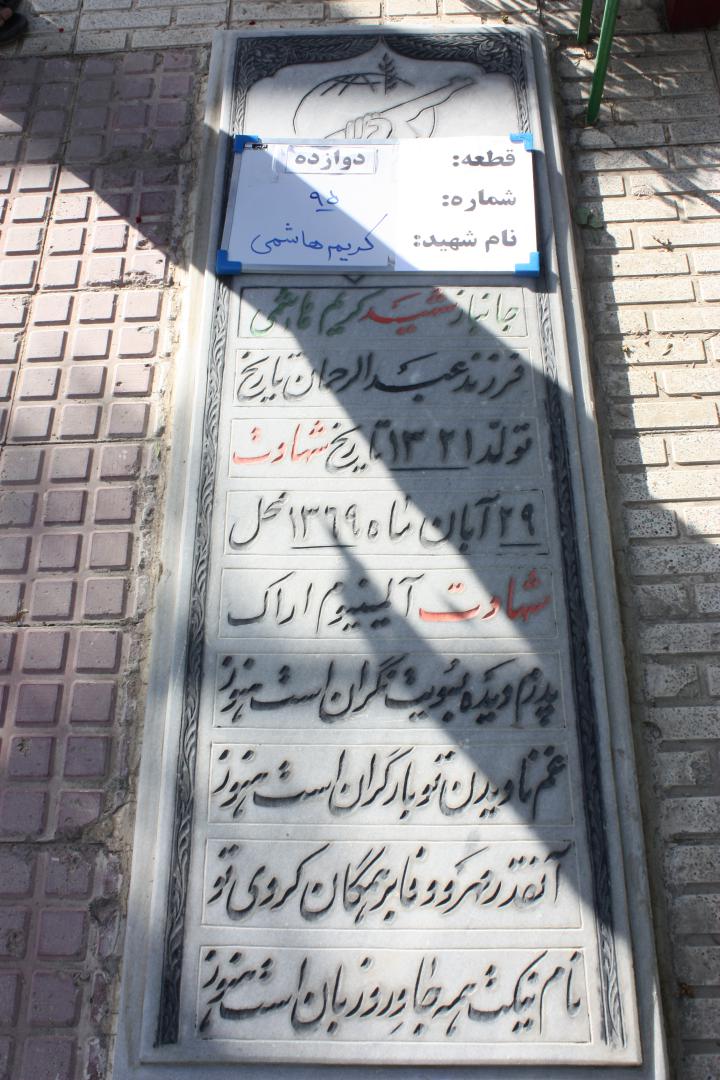 قطعه: دوازده
شماره: ۹۵
نام شهید: کریم هاشمی
جانباز شهید کریم هاشمی
فرزند عبدالرحمان تاریخ
تولد ۱۳۲۱ تاریخ شهادت
۲۹ آبان ماه ۱۳۶۹ محل
شهادت آلمینیوم اراک
پدرم دیده بسویت نگران است هنوز
غم نادیدن تو بار گران است هنوز
آنقدر مهر و وفا بر همگان کردی تو
نام نیکت همه جا ورد زبان است هنوز